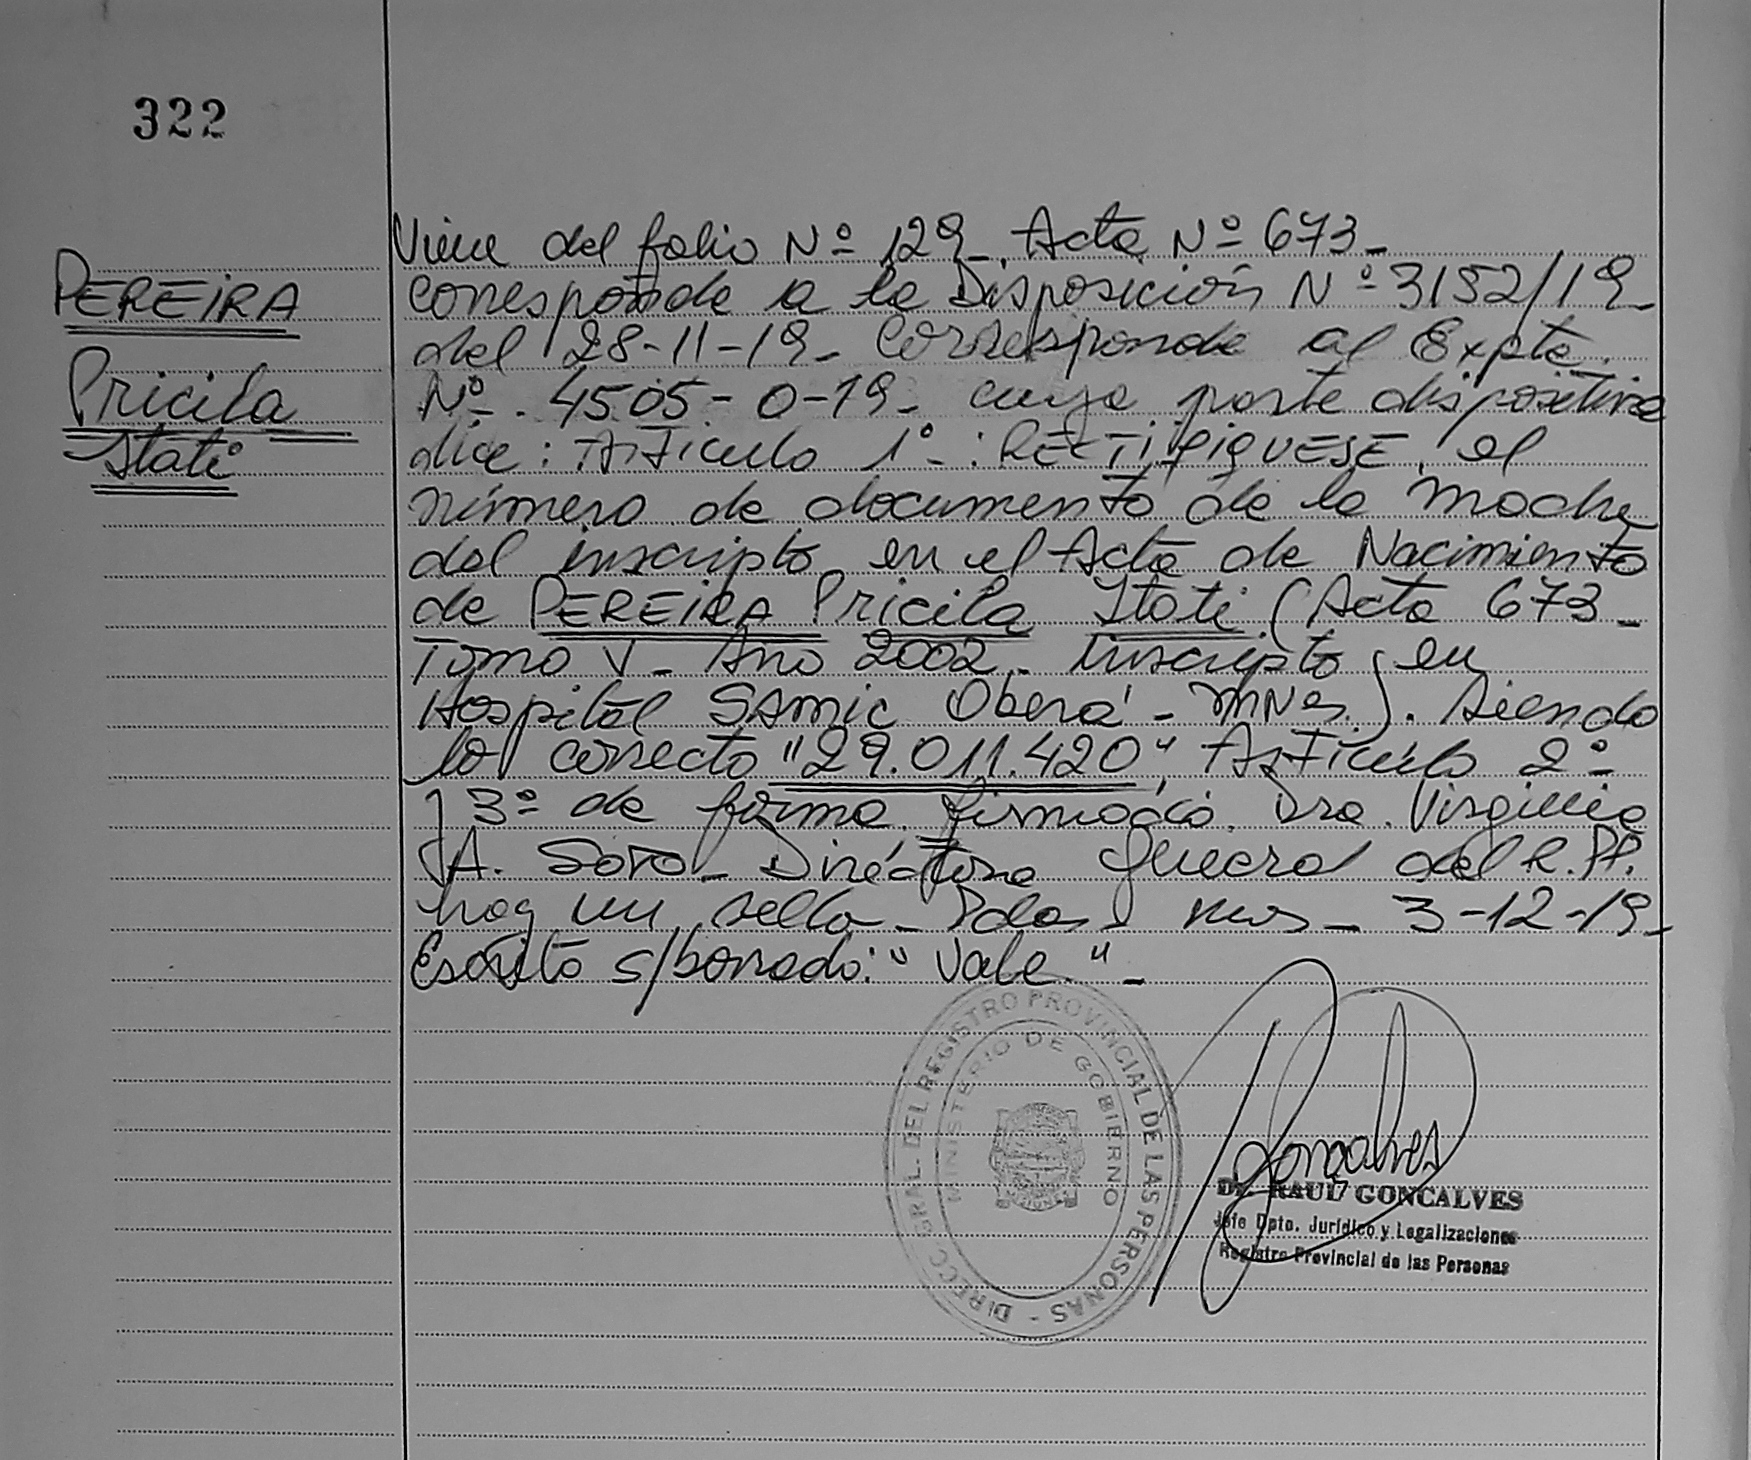 322
PEREIRA
Pricila
Itatí
Viene del folio Nº 129. Acta Nº 673-
corresponde a la Disposición Nº 3152/19-
del 28-11-19- Corresponde al Expte.
Nº. 4505-0-19- cuya parte dispositiva
dice: Artículo 1º-: RECTIFIQUESE, el
número de documento de la madre
del inscripto en el Acta de Nacimiento
de PEREIRA Pricila Itati (Acta 673-
Tomo V- Año 2002- Inscripto en
Hospital SAMIC Oberá - Mnes.). Siendo
lo correcto "29.011.420" Artículo 2º-
y 3º- de forma. firmado. Dra. Virginia
A. Soto- Directora General del R.PP.
hay un sello- Pdas Mns- 3-12-19-
Escrito s/borrado: "Vale"-
DIRECC. GRAL. DEL REGISTRO PROVINCIAL DE LAS PERSONAS -
MINISTERIO DE GOBIERNO
Gonçalves
Dr. RAUL GONCALVES
Jefe Dpto. Jurídico y Legalizaciones
Registro Provincial de las Personas